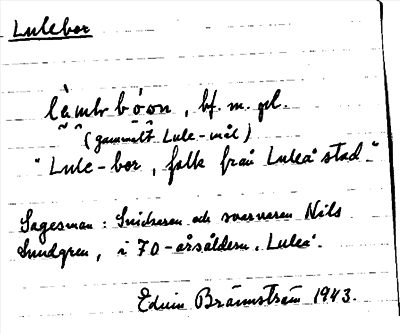 Lulebor
bóon, bf. m. pl.
(gammalt Lule-mål)
"Lule-bor, folk från Luleå stad."
Sagesman: Snickaren och svarvaren Nils
Sundgren, i 70-årsåldern. Luleå.
Edvin Brännström 1943.